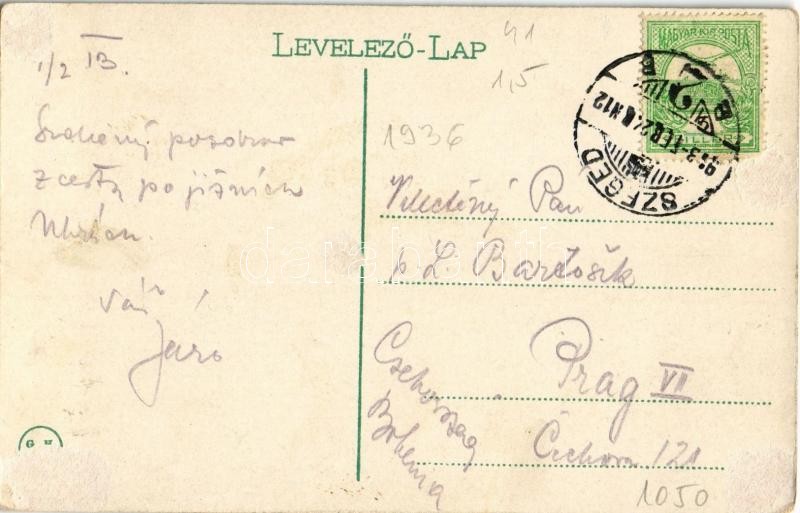 LEVELEZŐ-LAP
41
1,5
1936
MAGYAR KIR. POSTA
SZEGED
1/2 13.
Srdečný pozdrav
z cesty po jižních
Uhrách.
Váš
Jaro
Velectěný Pan
p L. Bartošík
Prag VII
Csehország
Bohemia
Čechova 121
1050